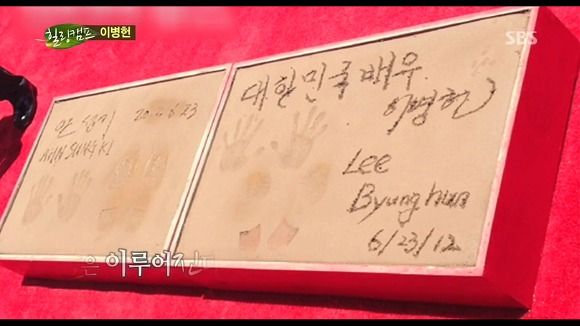 힐링캠프 이병헌
SBS
안성기
AHN SUNG KI
대한민국 배우
이병헌
Lee
Byung hun
6/23/12
은 이루어진다